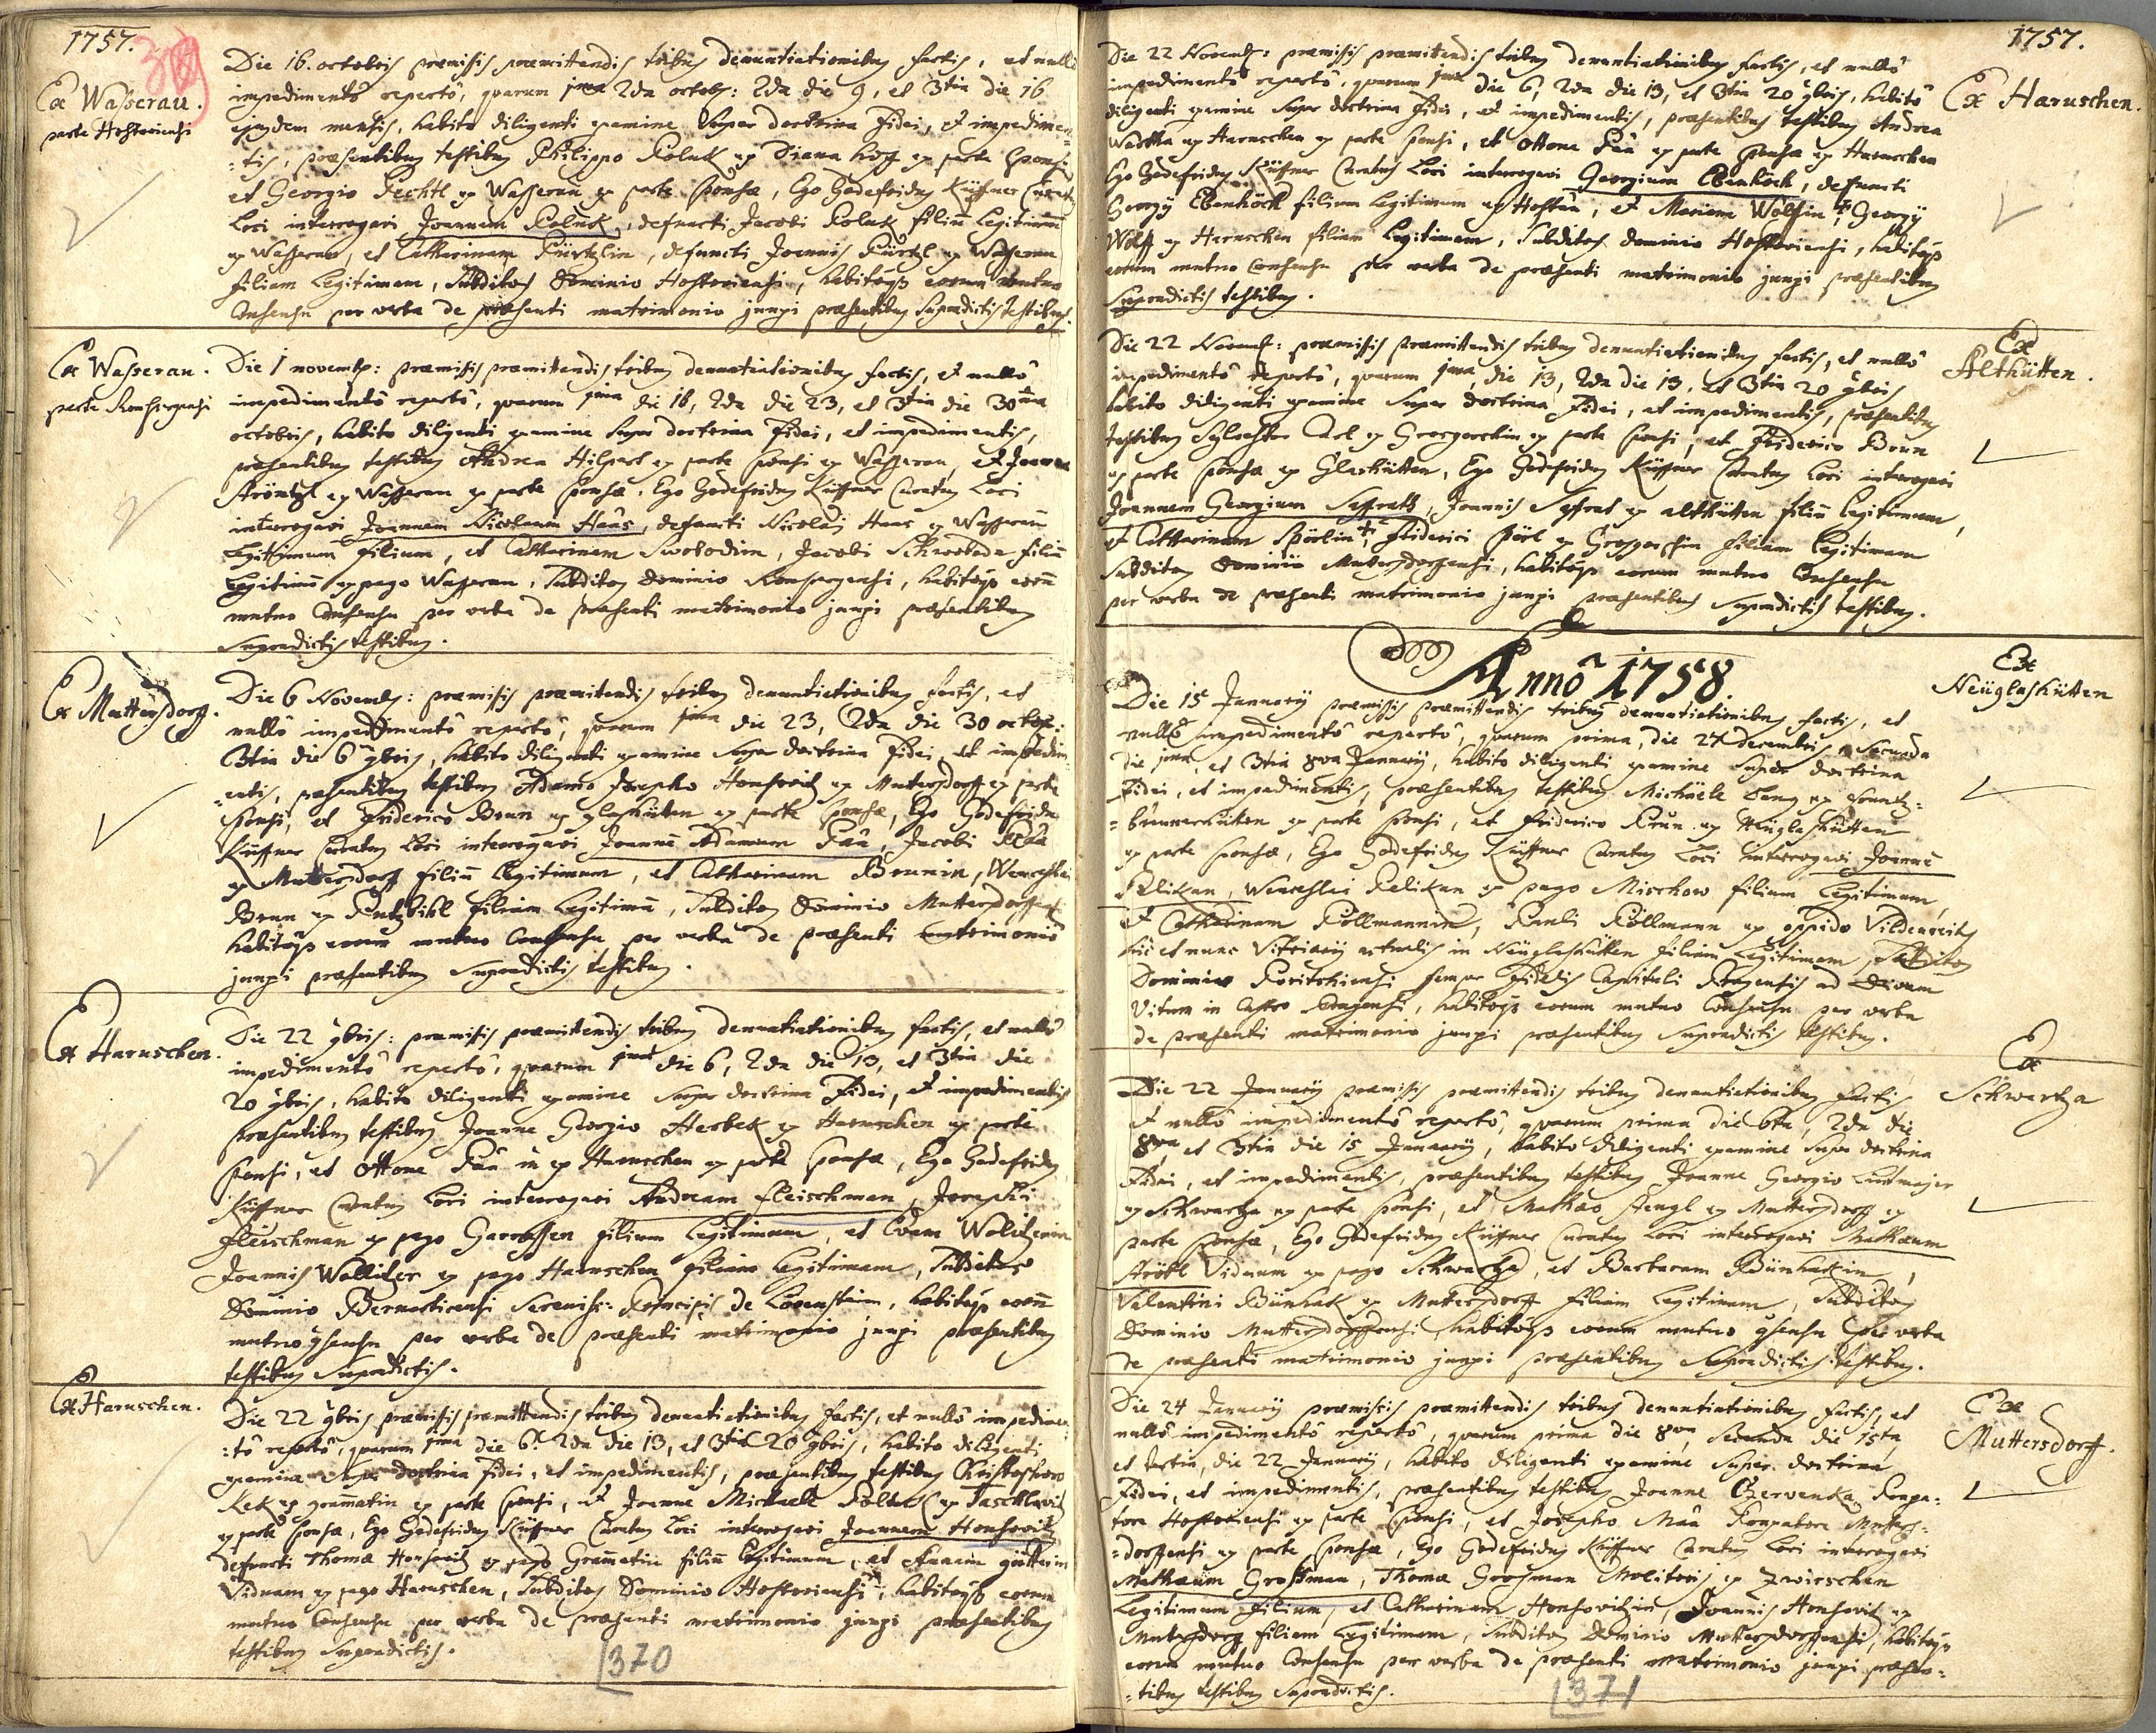 1757.
Ex Wasserau.
parte Hostoviensi
Die 16. octobris præmissis præmittendis tribus denuntiationibus factis, et nullo
impedimentô repertô, quarum 1ma 2da octob: 2da die 9, et 3tia die 16
ejusdem mensis, habito diligenti examine super doctrina Fidei, et impedimen=
=tis, præsentibus testibus Philippo Poluk ex Diana hoff ex parte sponsi
et Georgio Fechtl ex Wasserau ex parte sponsæ, Ego Godefridus Küffner Curatus
Loci interrogavi Joannem Poluk, defuncti Jacobi Poluk filiū Legitimū
ex Wasserau, et Catharinam Fürtzlin, defuncti Joannis Fürtzl ex Wasserau
filiam Legitimam, Subditos Dominio Hostoviensi, habitoqz eorum mutuo
Consensu per verba de præsenti matrimonio junxi præsentibus Supradictis testibus.
Ex Wasserau.
parte Ronspergensi
Die 1 novemb: præmissis præmittendis tribus denuntiationibus factis, et nullô
impedimentô repertô, quarum 1ma die 16, 2da die 23, et 3tia die 30ma
octobris, habito diligenti examine super doctrina Fidei, et impedimentis,
præsentibus testibus Andrea Hilpert ex parte sponsi ex Wasserau, et Joanne
Ströntzl ex Wasserau ex parte sponsæ, Ego Godefridus Küffner Curatus Loci
interrogavi Joannem Nicolaum Haas, defuncti Nicolaij Haas ex Wasserau
Legitimum filium, et Catharinam Swobodin, Jacobi Schwoboda filiā
Legitimā ex pago Wasserau, Subditos Dominio Ronspergensi, habitoqz eorū
mutuo Consensu per verba de præsenti matrimonio junxi præsentibus
Supradictis testibus.
Ex Muttersdorff.
Die 6 Novemb: præmissis præmittendis tribus denuntiationibus factis, et
nullô impedimentô repertô, quarum 1ma die 23, 2da die 30 octob:
3tia die 6 9bris, habito diligenti examine super doctrina Fidei, et impedim
=entis, præsentibus testibus Adamo Josepho Honsowitz ex Muttersdorff ex parte
sponsi, et Friderico Brun ex glashütten ex parte sponsæ, Ego Godefridus
Küffner Curatus Loci interrogavi Joannē Adamum Paâ, Jacobi Paâ
ex Muttersdorff filiū Legitimum, et Catharinam Brunin, Wenceslai
Brun ex Putzbühl filiam Legitimā, Subditos Dominio Muttersdorffensi
habitoqz eorum mutuo Consensu per verba de præsenti matrimonio
junxi præsentibus Supradictis testibus.
Ex Haruschen.
Die 22 9bris: præmissis præmittendis tribus denuntiationibus factis, et nullô
impedimentô repertô, quarum 1ma die 6, 2da die 13, et 3tia die
20 9bris, habito diligenti examine super doctrina Fidei, et impedimentis
præsentibus testibus Joanne Georgio Herbek ex Haruschen ex parte
sponsi, et Ottone Paâ in ex Haruschen ex parte sponsæ, Ego Godefridus
Küffner Curatus Loci interrogavi Andream Fleischman, Josephi
Fleischman ex pago Garrassen filium Legitimum, et Evam Wolitzerin
Joannis Wallitzer ex pago Haruschen filiam Legitimam, Subditos
Dominio Bernarticensi Sereniss: Principis de Löwenstein, habitoqz eorū
mutuo 9sensu per verba de præsenti matrimonio junxi præsentibus
testibus Supradictis.
Ex Haruschen.
Die 22 9bris præmissis præmittendis tribus denuntiationibus factis, et nullô impedimen
=tô repertô, quarum 1ma die 6. 2da die 13, et 3tia 20 9bris, habito diligenti
examine super doctrina Fidei, et impedimentis, præsentibus testibus Christophoro
Kek ex grammatin ex parte sponsi, et Joanne Michaele Pölzl ex Taschlowitz
ex parte sponsæ, Ego Godefridus Küffner Curatus Loci interrogavi Joannem Honsowitz
defuncti Thomæ Honsowitz ex pago Grammatin filiū Legitimum, et Annam
Viduam ex pago Haruschen, Subditos Dominio Hostoviensi, habitoqz eorum
mutuo Consensu per verba de præsenti matrimonio junxi præsentibus
testibus Supradictis.
370
1757.
Ex Haruschen.
Die 22 Novemb: præmissis præmittendis tribus denuntiationibus factis, et nullô
impedimentô repertô, quarum 1ma die 6, 2da die 13, et 3tia 20 9bris, habito
diligenti examine super doctrina Fidei, et impedimentis, præsentibus testibus Andrea
Wartha ex Haruschen ex parte sponsi, et Ottone Paâ ex parte sponsæ ex Haruschen
Ego Godefridus Küffner Curatus Loci interrogavi Georgium Ebenhöch, defuncti
Georgij Ebenhöch filium Legitimum ex Hostau, et Mariam Wolfin, Georgij
Wolff ex Haruschen filiam Legitimam, Subditos Dominio Hostoviensi, habitoqz
eorum mutuo Consensu per verba de præsenti matrimonio junxi præsentibus
Supradictis testibus.
Ex
Althütten.
Die 22 Novemb: præmissis præmittendis tribus denuntiationibus factis, et nullô
impedimentô repertô, quarum 1ma die 13, 2da die 13, et 3tia 20 9bris
habito diligenti examine super doctrina Fidei, et impedimentis, præsentibus
testibus Sylvestro ex ex parte sponsi, et Friderico Brun
ex parte sponsæ ex Glashütten, Ego Godefridus Küffner Curatus Loci interrogavi
Joannem Georgium Seffrath, Joannis Seffrat ex althütten filiū Legitimum,
et Catharinam Pörlin, Friderici Pörl ex filiam Legitimam
Subditos Dominio Muttersdorffensi, habitoqz eorum mutuo Consensu
per verba de præsenti matrimonio junxi præsentibus Supradictis testibus.
Annô 1758.
Ex
Neüglashütten
Die 15 Januarij præmissis præmittendis tribus denuntiationibus factis, et
nullô impedimentô repertô, quarum prima, die 27 decembris, Secunda
die 1ma, et 3tia 8va Januarij, habito diligenti examine super doctrina
Fidei, et impedimentis, præsentibus testibus Michaële Lang ex
=brunnerhütten ex parte sponsi, et Friderico Prun ex Neüglashütten
ex parte sponsæ, Ego Godefridus Küffner Curatus Loci interrogavi Joannē
Pelikan, Wenceslai Pelikan ex pago Mirschow filium Legitimum,
et Catharinam Pöllmannin, Pauli Pöllmann ex oppido
hic et nunc Vitriarij actualis in Neüglashütten filiam Legitimam, Subditos
Dominio semper Fidelis Capituli Pragensis ad Divum
Vitum in Castro Pragensi, habitoqz eorum mutuo Consensu per verba
de præsenti matrimonio junxi præsentibus Supradictis testibus.
Ex
Schwartza
Die 22 Januarij præmissis præmittendis tribus denuntiationibus factis
et nullô impedimentô repertô, quarum prima die 6ta, 2da die
8va, et 3tia die 15 Januarij, habito diligenti examine super doctrina
Fidei, et impedimentis, præsentibus testibus Joanne Georgio Lindmajer
ex Schwartza ex parte sponsi, et Mathæo Stengl ex Muttersdorff ex
parte sponsæ, Ego Godefridus Küffner Curatus Loci interrogavi Mathæum
Ströhl Viduum ex pago Schwartza, et Barbaram Bünhakin,
Valentini Bünhak ex Muttersdorff filiam Legitimam, Subditos
Dominio Muttersdorffensi habitoqz eorum mutuo 9sensu per verba
de præsenti matrimonio junxi præsentibus Supradictis testibus.
Ex
Muttersdorff.
Die 24 Januarij præmissis præmittendis tribus denuntiationibus factis, et
nullô impedimentô repertô, quarum prima die 8va, Secunda die 15ta,
et tertia, die 22 Januarij, habito diligenti examine super doctrina
Fidei, et impedimentis, præsentibus testibus Joanne Czervenka
Hostoviensi ex parte sponsi, et Josepho Maâ Mutters=
=dorffensi ex parte sponsæ, Ego Godefridus Küffner Curatus Loci interrogavi
Mathæum Grossman, Thomæ Grosman Molitoris ex Zwirschen
Legitimum filium, et Catharinam Honsovitzin, Joannis Honsovitz ex
Muttersdorff filiam Legitimam, Subditos Dominio Muttersdorffensi, habitoqz
eorum mutuo Consensu per verba de præsenti matrimonio junxi præsen=
=tibus testibus Supradictis.
371